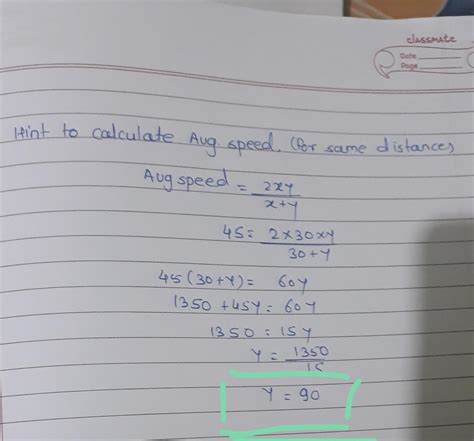 classmate
Date
Page
Hint to calculate Aug. speed. (for same distance)
Aug speed = 2xy / x+y
45 = 2×30×y / 30+y
45(30+y) = 60y
1350 + 45y = 60y
1350 = 15y
y = 1350 / 15
y = 90